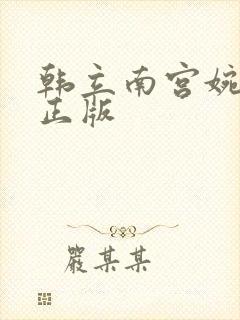 韩立南宫婉
正版
嚴某某